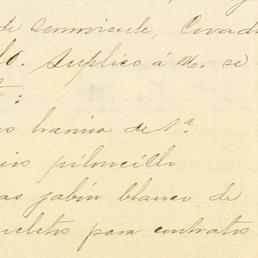 de semvicule, Covad
lo. Suplico á U. se
os harina de 1ª
ios piloncillo
as jabón blanco de
ueletos para contratos